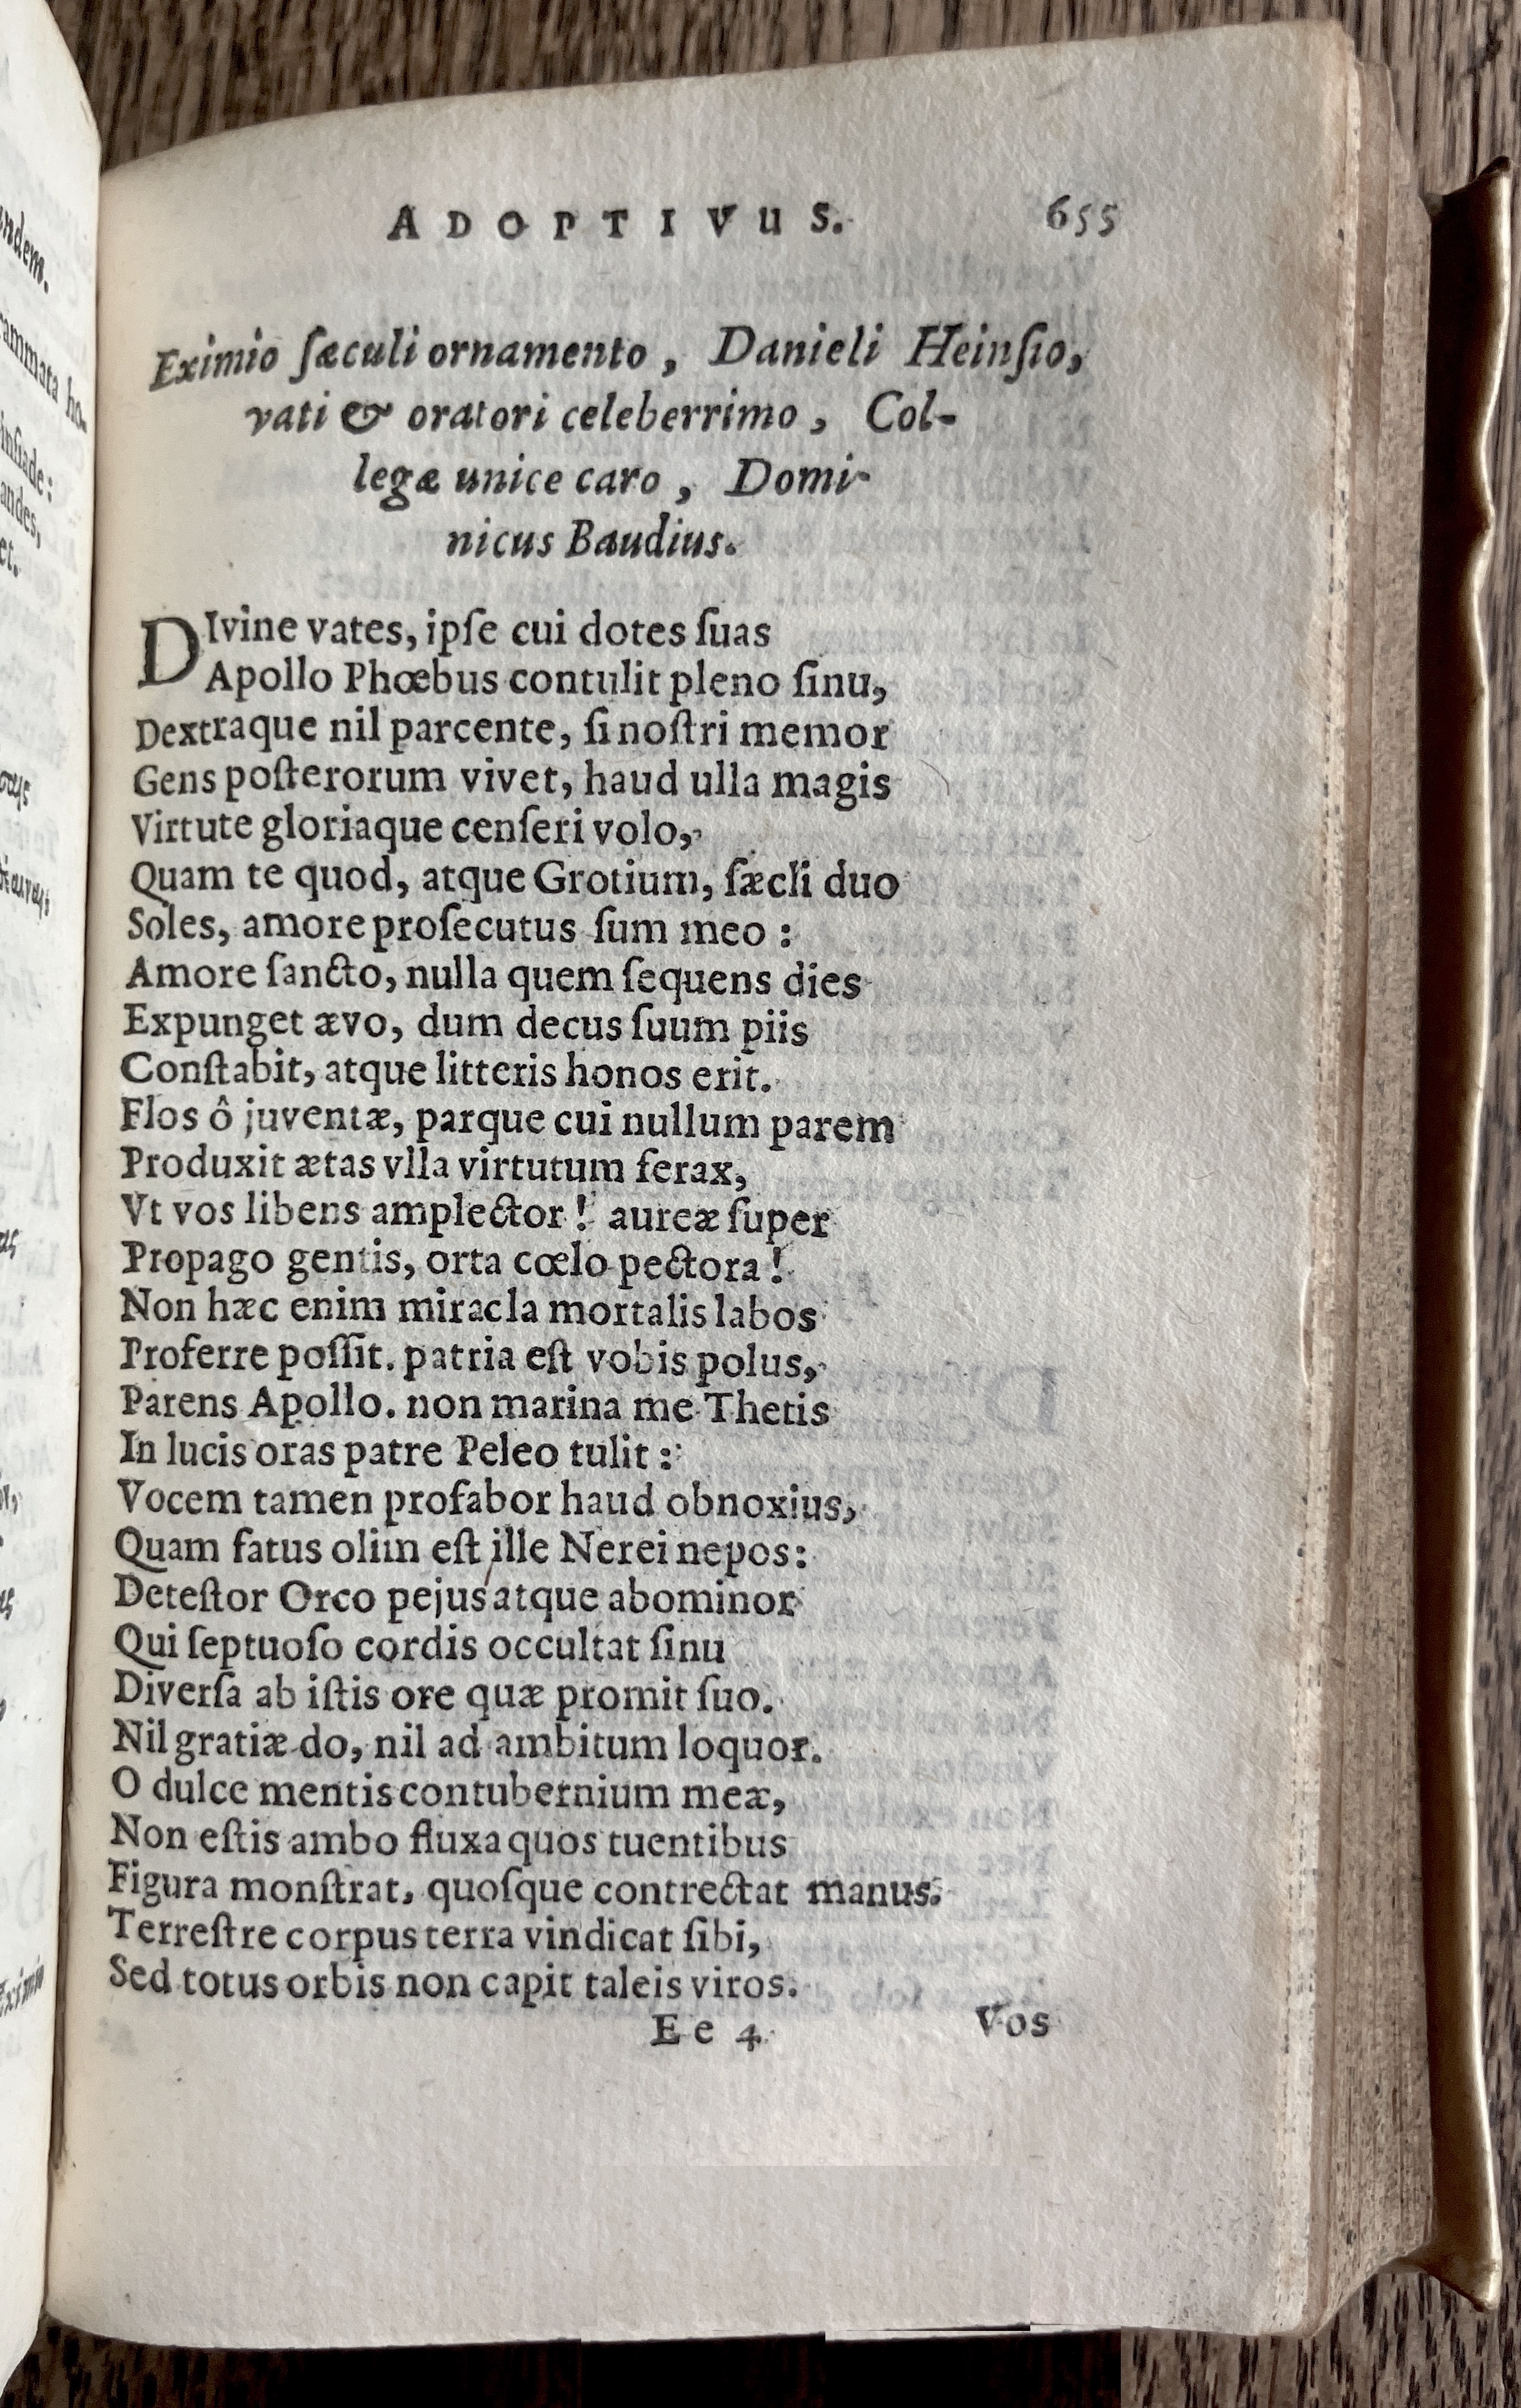 ADOPTIVUS. 655
Eximio ſæculi ornamento, Danieli Heinſio,
vati & oratori celeberrimo, Col-
legæ unice caro, Domi-
nicus Baudius.
DIvine vates, ipſe cui dotes ſuas
Apollo Phœbus contulit pleno ſinu,
Dextraque nil parcente, ſi noſtri memor
Gens poſterorum vivet, haud ulla magis
Virtute gloriaque cenſeri volo,
Quam te quod, atque Grotium, ſæcli duo
Soles, amore proſecutus ſum meo :
Amore ſancto, nulla quem ſequens dies
Expunget ævo, dum decus ſuum piis
Conſtabit, atque litteris honos erit.
Flos ô juventæ, parque cui nullum parem
Produxit ætas vlla virtutum ferax,
Vt vos libens amplector ! aureæ ſuper
Propago gentis, orta cœlo pectora !
Non hæc enim miracla mortalis labos
Proferre poſſit. patria eſt vobis polus,
Parens Apollo. non marina me Thetis
In lucis oras patre Peleo tulit :
Vocem tamen profabor haud obnoxius,
Quam fatus olim eſt ille Nerei nepos:
Deteſtor Orco pejus atque abominor
Qui ſeptuoſo cordis occultat ſinu
Diverſa ab iſtis ore quæ promit ſuo.
Nil gratiæ do, nil ad ambitum loquor.
O dulce mentis contubernium meæ,
Non eſtis ambo fluxa quos tuentibus
Figura monſtrat, quoſque contrectat manus.
Terreſtre corpus terra vindicat ſibi,
Sed totus orbis non capit taleis viros.
Ee 4 Vos